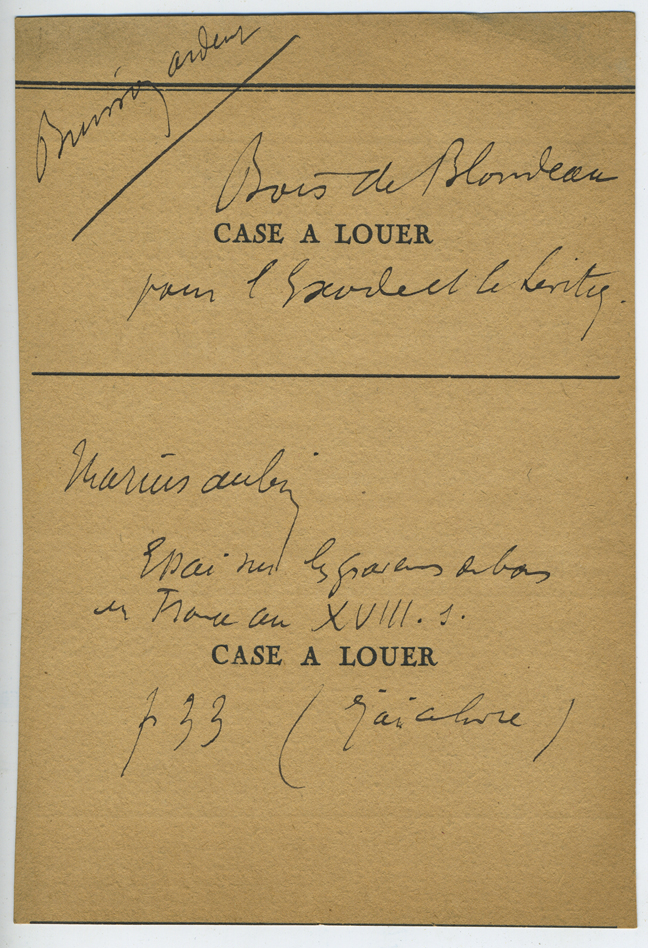 Buisson ardent
Bois de Blondeau
CASE A LOUER
pour l'Exode et le Levitiq.
Marius Audin
Essai sur les graveurs de bois
en France au XVIII. s.
CASE A LOUER
p 33 (
)